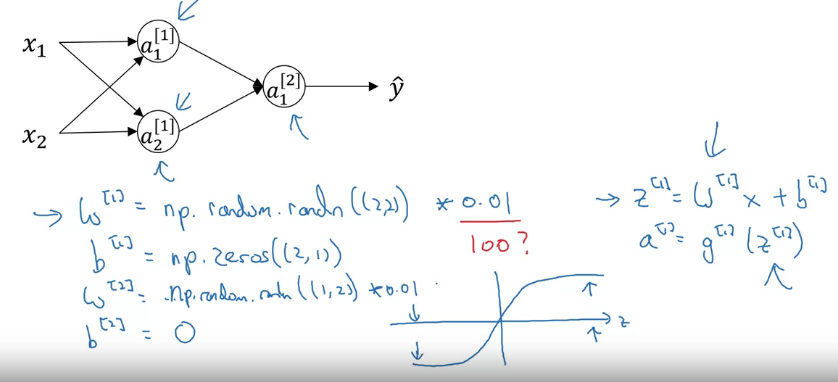 x₁
a₁^[1]
a₁^[2]
ŷ
x₂
a₂^[1]
→ W^[1] = np.random.randn((2,2)) * 0.01
100?
b^[1] = np.zeros((2,1))
W^[2] = np.random.randn((1,2)) * 0.01
b^[2] = 0
→ z^[1] = W^[1] x + b^[1]
a^[1] = g^[1](z^[1])
z